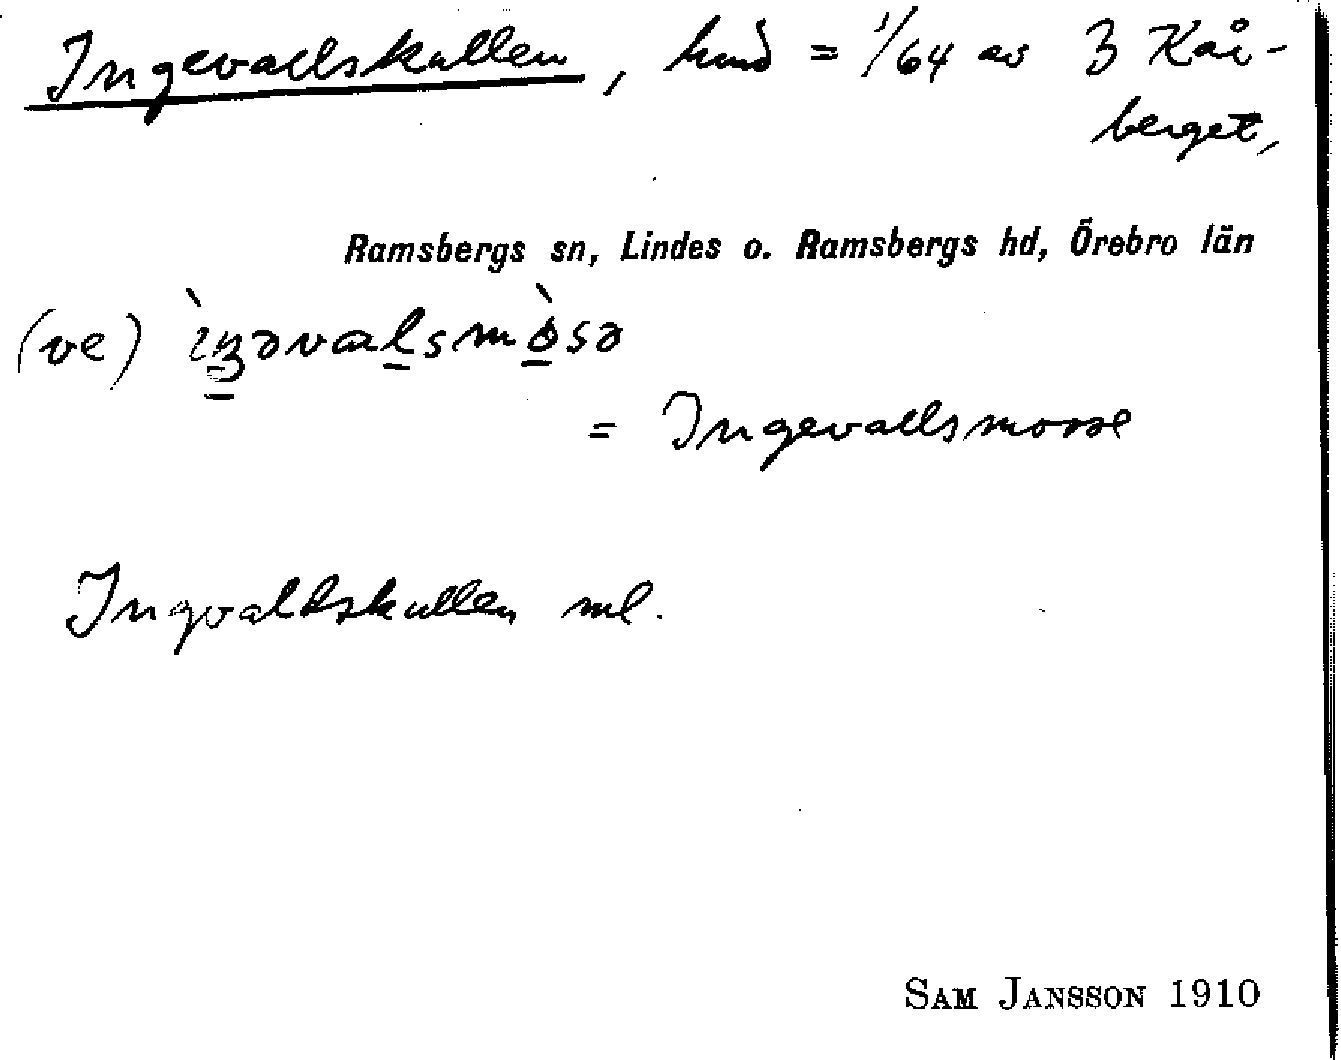 Ingevallskullen, hmd = 1/64 av 3 Kåi-
berget,
Ramsbergs sn, Lindes o. Ramsbergs hd, Örebro län
(ve)
= Ingevallsmosse
Ingvaldskullen ml.
SAM JANSSON 1910